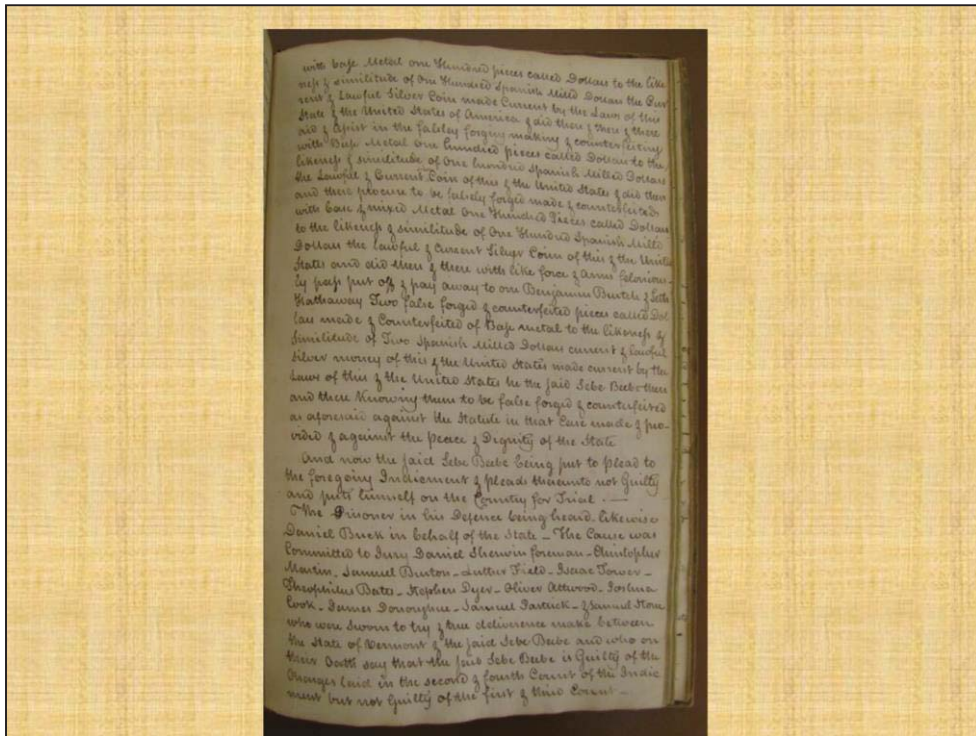 with base Metal one Hundred pieces called Dollars to the like
ness & similitude of One Hundred Spanish Milled Dollars the Cur
rent & Lawful Silver Coin made Current by the Laws of this
State & the United States of America & did then & there & there
aid & Assist in the falsley forging making & counterfeiting
with Base Metal One hundred pieces called Dollars to the
likeness & similitude of One hundred Spanish Milled Dollars
the Lawful & Current Coin of this & the United States & did then
and there procure to be falsely forged made & counterfeited
with base & mixed Metal One Hundred Pieces called Dollars
to the likeness & similitude of One Hundred Spanish Milld
Dollars the lawful & Current Silver Coin of this & the United
States and did then & there with like force & arms felonious-
ly pass put off & pay away to one Benjamin Burtch & Seth
Hathaway Two false forged & counterfeited pieces called Dol
lars made & Counterfeited of Base metal to the likeness &
similitude of Two Spanish Milled Dollars current & lawful
Silver money of this & the United States made current by the
Laws of this & the United States he the said Sebe Beebe then
and there Knowing them to be false forged & counterfeited
as aforesaid against the Statute in that Case made & pro-
vided & against the Peace & Dignity of the State
And now the said Sebe Beebe being put to plead to
the foregoing Indicment & pleads thereunto not Guilty
and puts himself on the Country for Trial . —
The Prisoner in his Defence being heard likewise
Daniel Buck in behalf of the State – The Cause was
Committed to Jury Daniel Sherwin foreman – Christopher
Martin, Samuel Burton – Luther Field – Isaac Tower –
Theophilus Bates – Stephen Dyer – Oliver Attwood – Joshua
Cook – James Donoryhue – Samuel Partrick – & Samuel Stone
who were sworn to try & true deliverence make between
the State of Vermont & the said Sebe Beebe and who on
their Oath say that the said Sebe Beebe is Guilty of the
Charges laid in the second & fourth Count of the Indic
ment but not Guilty of the first & third Count –